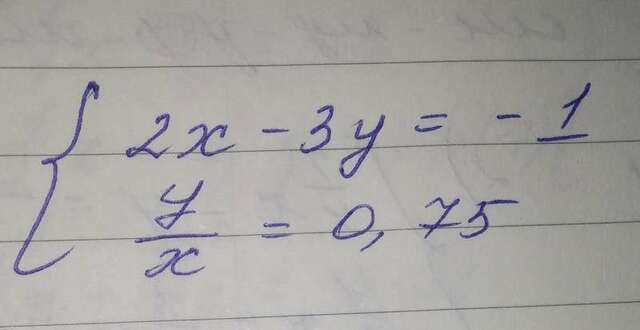 2x - 3y = - 1
y/x = 0,75